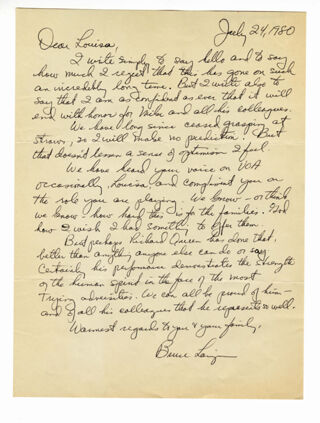 July 24, 1980
Dear Louisa,
I write simply to say hello and to say
how much I regret that this has gone on such
an incredibly long time. But I write also to
say that I am as confident as ever that it will
end with honor for Mike and all his colleagues.
We have long since ceased grasping at
straws, so I will make no predictions. But
that doesn't lessen a sense of optimism I feel.
We have heard your voice on VOA
occasionally, Louisa, and compliment you on
the role you are playing. We know - or think
we know - how hard this is for the families. God
how I wish I had something to offer them.
But perhaps Richard Queen has done that,
better than anything anyone else can do or say.
Certainly his performance demonstrates the strength
of the human spirit in the face of the most
trying adversities. We can all be proud of him -
and of all his colleagues that he represents so well.
Warmest regards to you & your family,
Bruce